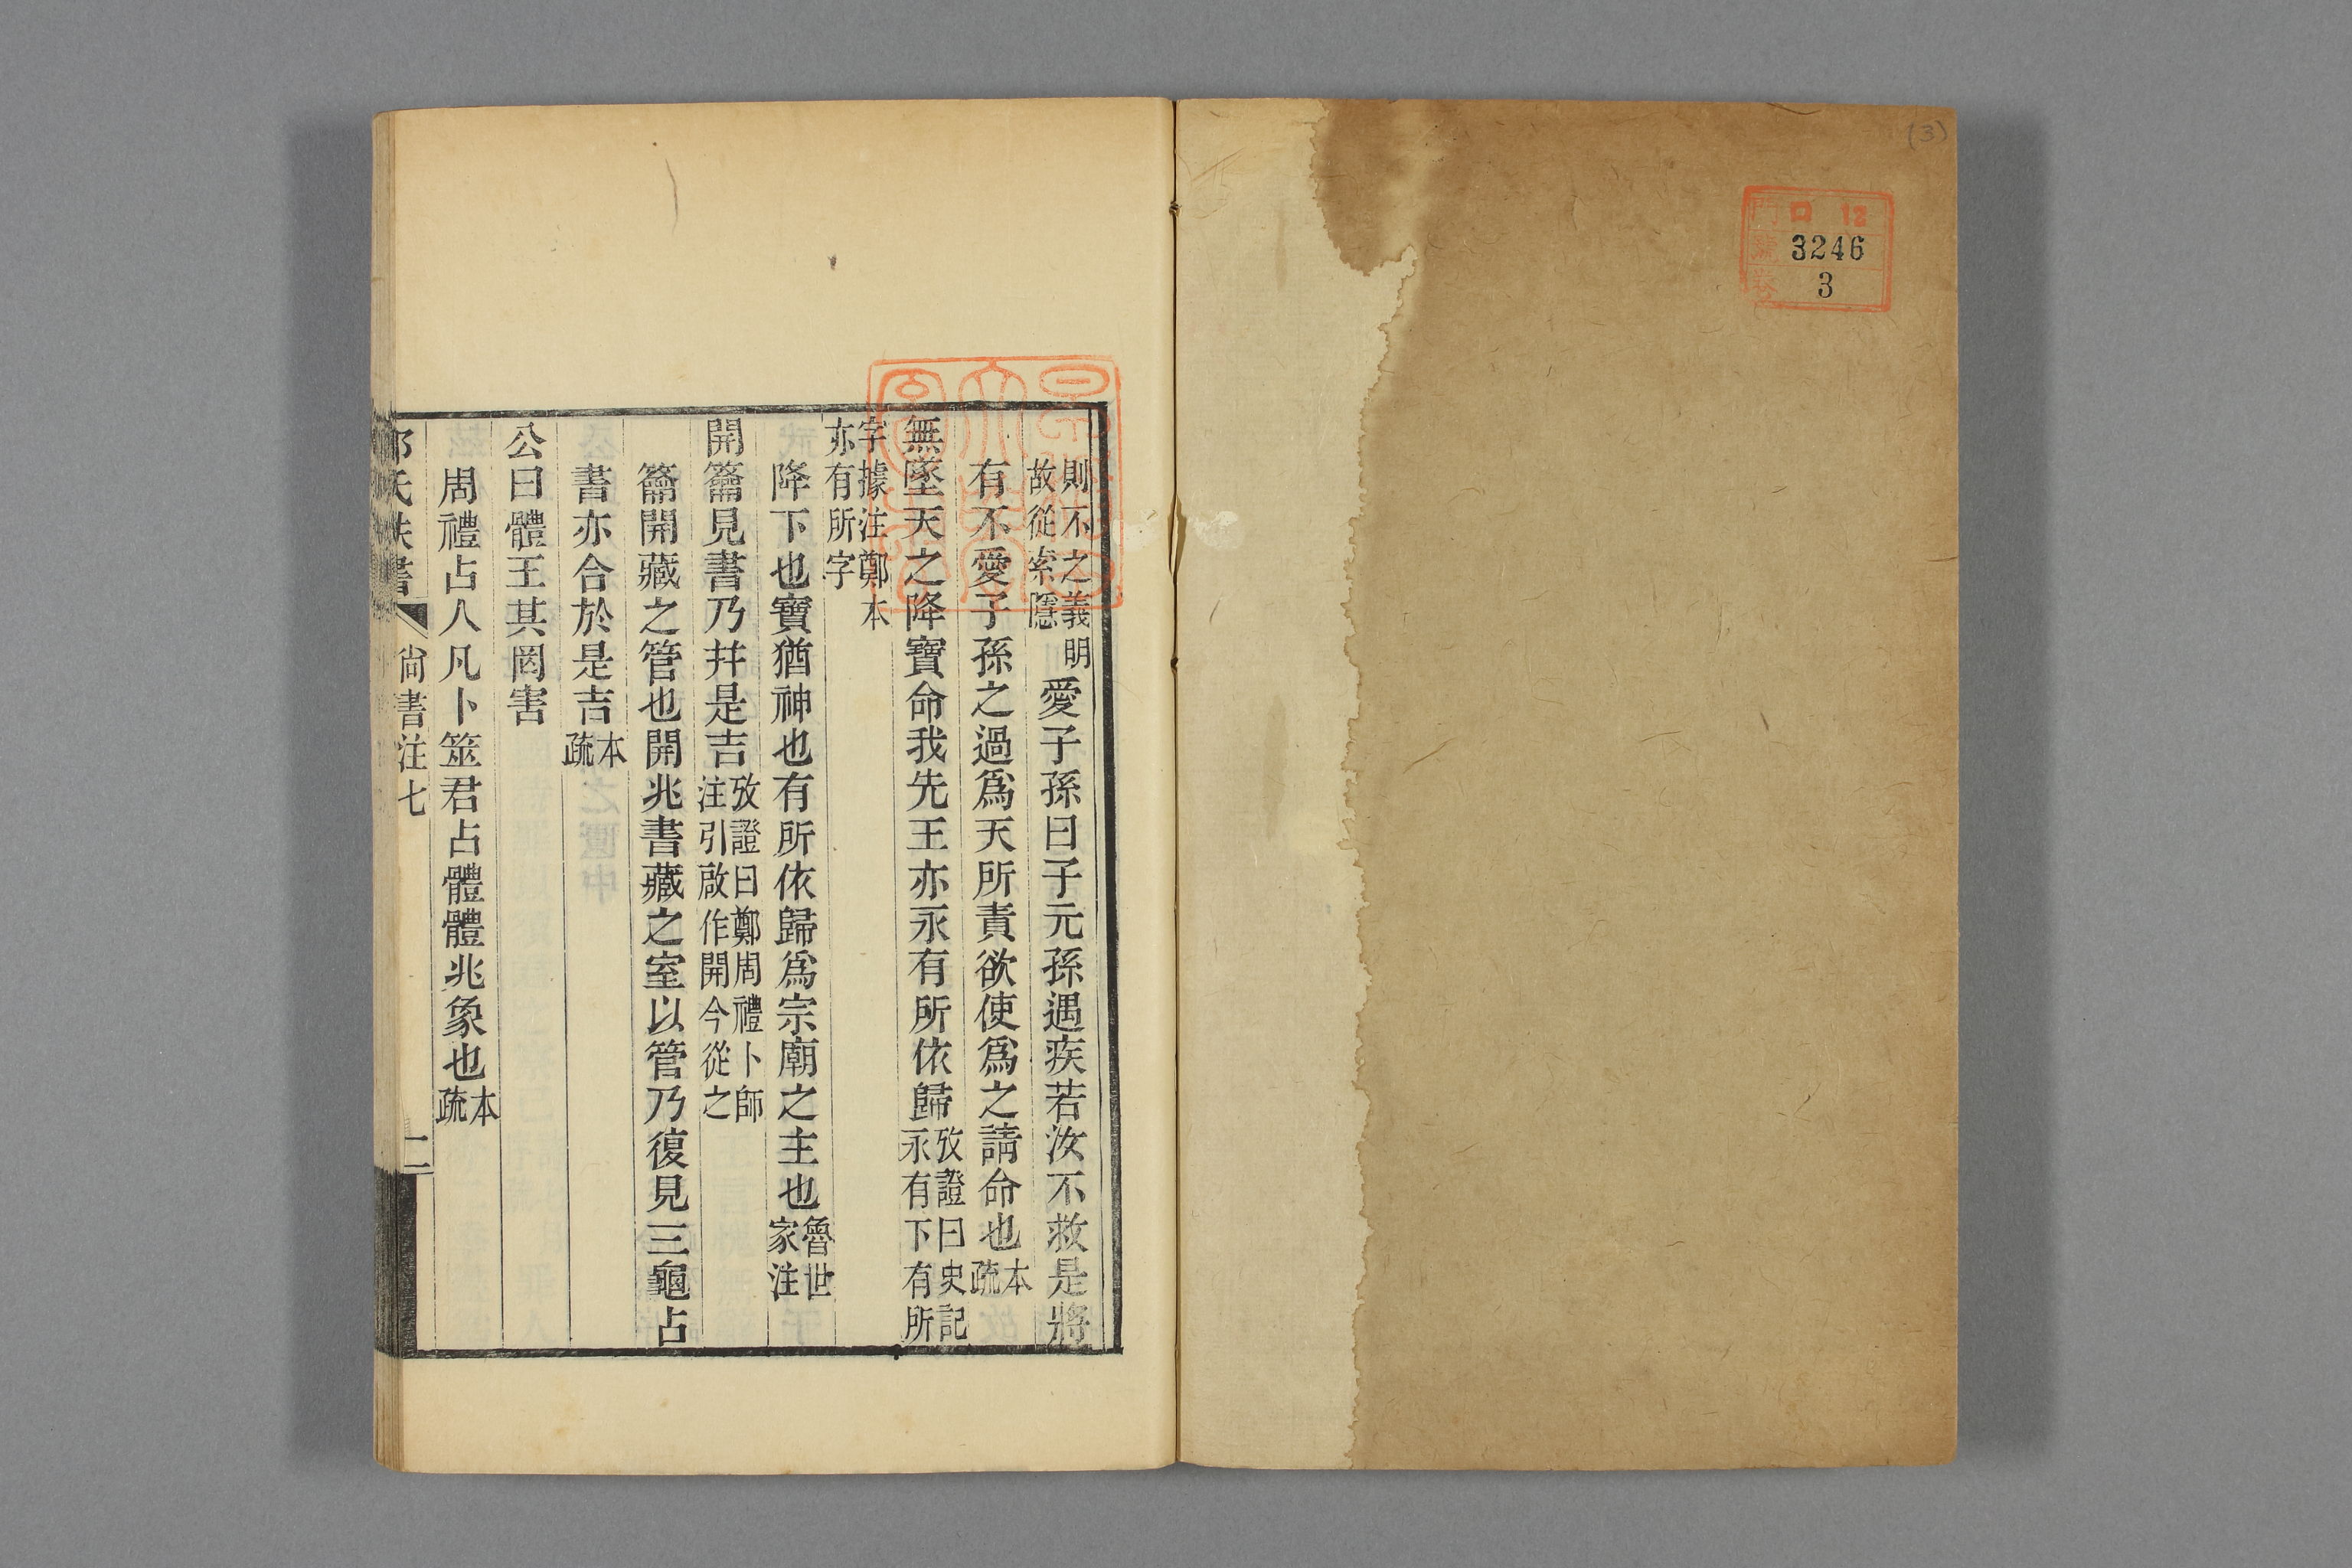 (3)
門 口 12
號 3246
卷 3
則不之義明
故從索隱
愛子孫曰子元孫遇疾若汝不救是將
有不愛子孫之過爲天所責欲使爲之請命也本疏
無墜天之降寶命我先王亦永有所依歸
攷證曰史記
永有下有所
字據注鄭本
亦有所字
降下也寶猶神也有所依歸爲宗廟之主也
魯世
家注
開籥見書乃幷是吉
攷證曰鄭周禮卜師
注引啟作開今從之
籥開藏之管也開兆書藏之室以管乃復見三龜占
書亦合於是吉本疏
公曰體王其罔害
周禮占人凡卜筮君占體體兆象也本疏
氏佚書 尙書注七 二